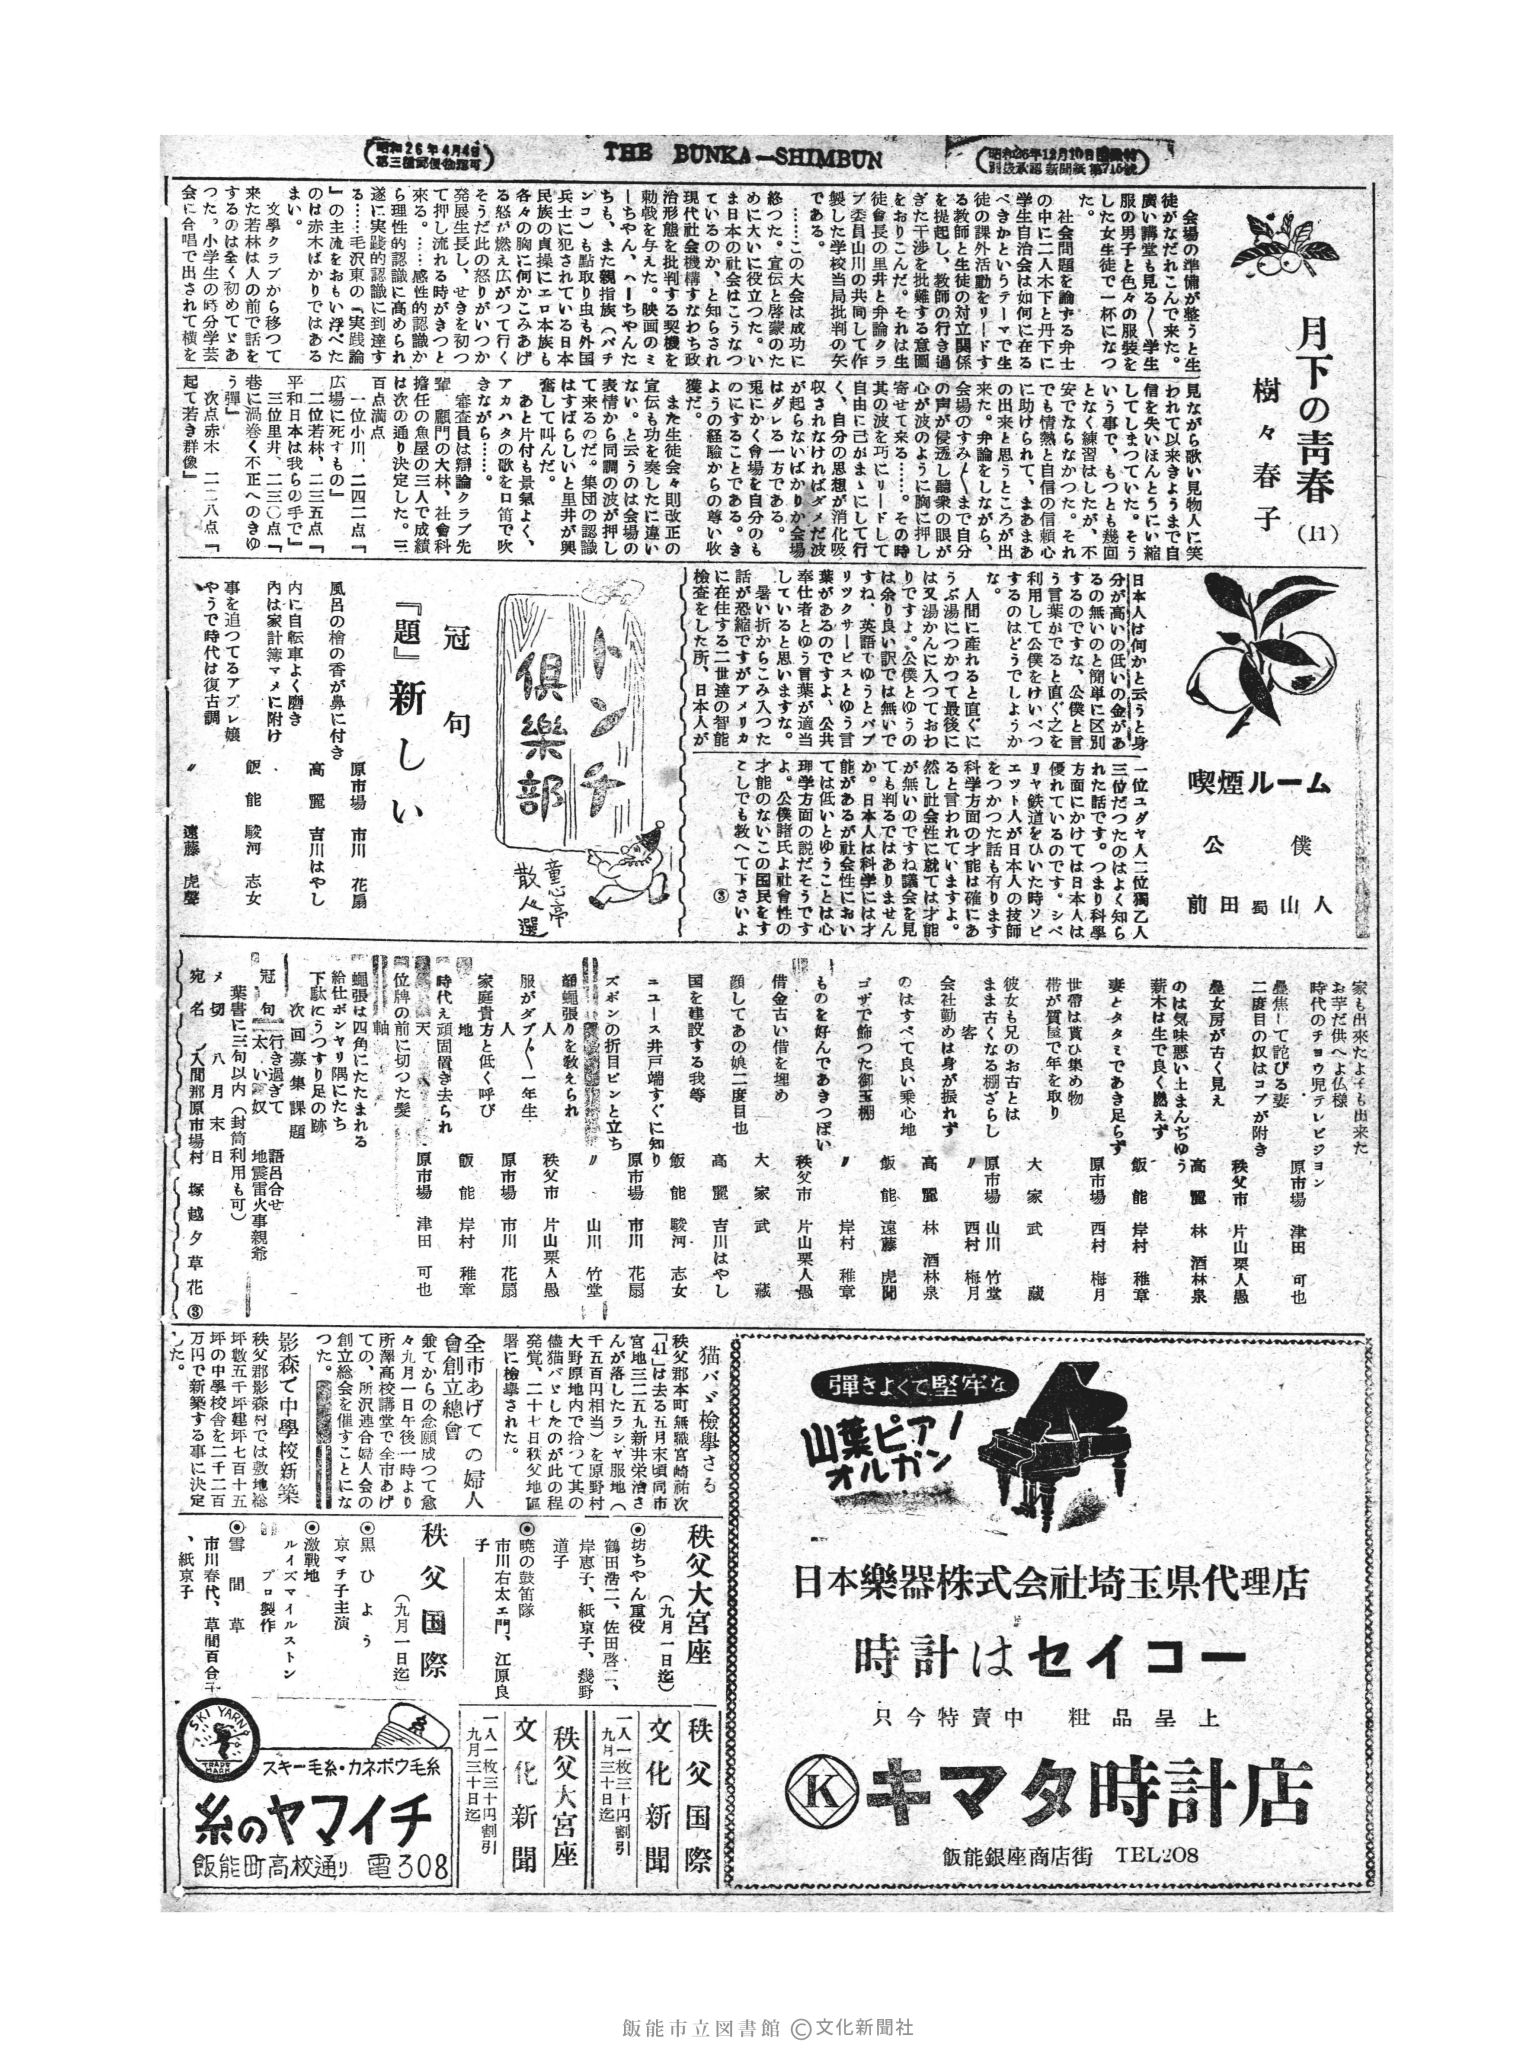 昭和26年4月4日
第三種郵便物認可
THE BUNKA—SHIMBUN
月下の青春
樹々春子
(11)
会場の準備が整うと生
徒がなだれこんで来た。
廣い講堂も見る〳〵学生
服の男子と色々の服装を
した女生徒で一杯になつ
た。
社会問題を論ずる弁士
の中に二人木下と丹下に
学生自治会は如何に在る
べきかというテーマで生
徒の課外活動をリードす
る教師と生徒の対立關係
を提起し、教師の行き過
ぎた干渉を批難する意圖
をおりこんだ。それは生
徒會長の里井と弁論クラ
ブ委員山川の共同して作
製した学校当局批判の矢
である。
……この大会は成功に
終つた。宣伝と啓蒙のた
めに大いに役立つた。い
ま日本の社会はこうなつ
ているのか、と知らされ
現代社会機構すなわち政
治形態を批判する契機を
勅戟を与えた。映画のミ
ーちやん、ハーちやんた
ちも、また親指族（パチ
ンコ）も點取り虫も外国
兵士に犯されている日本
民族の貞操にエロ本族も
各々の胸に何かこみあげ
る怒が燃え広がつて行く
そうだ此の怒りがいつか
発展生長し、せきを初つ
て押し流れる時がきつと
來る。……感性的認識か
ら理性的認識に高められ
遂に実践的認識に到達す
る……毛沢東の『実践論
』の主流をおもい浮べた
のは赤木ばかりではある
まい。
文學クラブから移つて
来た若林は人の前で話を
するのは全く初めてゞあ
つた。小学生の時分学芸
会に合唱で出されて横を
見ながら歌い見物人に笑
われて以来きようまで自
信を失いほんとうにい縮
してしまつていた。そう
いう事で、もつとも幾回
となく練習はしたが、不
安でならなかつた。それ
でも情熱と自信の信頼心
に助けられて、まあまあ
の出来と思うところが出
来た。弁論をしながら、
会場のすみ〴〵まで自分
の声が侵透し聽衆の眼が
心が波のように胸に押し
寄せて来る……。その時
其の波を巧にリードして
自由に己がまゝにして行
く、自分の思想が消化吸
収されなければダメだ波
が起らないばかりか会場
はダレる一方である。
兎にかく會場を自分のも
のにすることである。き
ようの経驗からの尊い收
獲だ。
また生徒会々則改正の
宣伝も功を奏したに違い
ない。と云うのは会場の
表情から同調の波が押し
て来るのだ。集団の認識
はすばらしいと里井が興
奮して叫んだ。
あと片付も景氣よく、
アカハタの歌をロ笛で吹
きながら……。
審査員は辯論クラブ先
輩、顧問の大林、社會科
擔任の魚屋の三人で成績
は次の通り決定した。三
百点満点
一位小川、二四二点『
広場に死すもの』
二位若林、二三五点『
平和日本は我らの手で』
三位里井、二三〇点『
巷に渦巻く不正へのきゆ
う彈』
次点赤木　二二八点『
起て若き群像』
喫煙ルーム
公僕
前田蜀山人
日本人は何かと云うと身
分が高いの低いの金があ
るの無いのと簡単に区別
するのですな、公僕と言
う言葉がでると直ぐ之を
利用して公僕をけいべつ
するのはどうでしようか
な。
人間に産れると直ぐに
うぶ湯につかつて最後に
は又湯かんに入つておわ
りですよ。公僕とゆうの
は余り良い訳では無いで
すね、英語でゆうとパブ
リツクサービスとゆう言
葉があるのですよ、公共
奉仕者とゆう言葉が適当
していると思いますな。
暑い折からこみ入つた
話が恐縮ですがアメリカ
に在住する二世達の智能
檢査をした所、日本人が
一位ユダヤ人二位獨乙人
三位だつたのはよく知ら
れた話です。つまり科學
方面にかけては日本人は
優れているのです。シベ
リヤ鉄道をひいた時ソビ
エツト人が日本人の技師
をつかつた話も有ります
科学方面の才能は確にあ
ると言われていますよ。
然し社会性に就ては才能
が無いのですね議会を見
ても判るではありません
か。日本人は科学には才
能があるが社会性におい
ては低いとゆうことは心
理学方面の説だそうです
よ。公僕諸氏よ社會性の
才能のないこの国民をす
こしでも教へて下さいよ
③
トンチ
倶樂部
童心亭
散人選
冠句
『題』新しい
風呂の檜の香が鼻に付き
原市場　市川　花扇
内に自転車よく磨き
高麗　吉川はやし
内は家計簿マメに附け
飯能　駿河　志女
事を追つてるアプレ嬢
やうで時代は復古調
〃　遠藤　虎聲
家も出来たよ子も出来た
お芋だ供へよ仏様
時代のチヨウ児テレビジヨン
原市場　津田　可也
疊焦して詫びる妻
二度目の奴はコブが附き
秩父市　片山栗人愚
疊女房が古く見え
高麗　林　酒林泉
のは気味悪い土まんぢゆう
飯能　岸村　稚章
薪木は生で良く燃えず
妻とタタミであき足らず
原市場　西村　梅月
世帶は貰ひ集め物
帯が質屋で年を取り
大家　武藏
彼女も兄のお古とは
まま古くなる棚ざらし
原市場　山川　竹堂
客
〃　西村　梅月
会社勤めは身が振れず
高麗　林　酒林泉
のはすべて良い乗心地
飯能　遠藤　虎聞
ゴザで飾つた御玉棚
〃　岸村　稚章
ものを好んであきつぽい
秩父市　片山栗人愚
借金古い借を埋め
大家　武藏
顔してあの娘二度目也
高麗　吉川はやし
国を建設する我等
飯能　駿河　志女
ニユース井戸端すぐに知り
原市場　市川　花扇
ズボンの折目ピンと立ち
〃　山川　竹堂
顔蠅張りを教えられ
人
秩父市　片山栗人愚
服がダブ〳〵一年生
人
原市場　市川　花扇
家庭貴方と低く呼び
地
飯能　岸村　稚章
時代え頑固置き去られ
天
原市場　津田　可也
位牌の前に切つた髪
軸
蠅張は四角にたたまれる
給仕ボンヤリ隅にたち
下駄にうつすり足の跡
次回募集課題
冠句　行き過ぎて
太い奴
語呂合せ
地震雷火事親爺
葉書に三句以内（封筒利用も可）
〆切　八月末日
宛名　入間郡原市場村　塚越夕草花
③
猫バゞ檢擧さる
秩父郡本町無職宮崎祐次
「41」は去る五月末頃同市
宮地三二五九新井栄治さ
んが落したラシャ服地（
千五百円相当）を原野村
大野原地内で拾つて其の
儘猫バゞとしたのが此の程
発覚、二十七日秩父地區
署に檢擧された。
全市あげての婦人
會創立總會
兼てからの念願成つて愈
々九月一日午後一時より
所澤高校講堂で全市あげ
ての、所沢連合婦人会の
創立総会を催すことにな
つた。
影森で中學校新築
秩父郡影森村では敷地総
坪數五千坪建坪七百十五
坪の中學校舍を二千二百
万円で新築する事に決定
した。
秩父大宮座
（九月一日迄）
◉坊ちやん重役
鶴田浩二、佐田啓二、
岸恵子、紙京子、幾野
道子
◉暁の鼓笛隊
市川右太エ門、江原良
子
秩父国際
（九月一日迄）
◉黒ひよう
京マチ子主演
◉激戦地
ルイズマイルストン
プロ製作
◉雪間草
市川春代、草間百合子
、紙京子
秩父国際
文化新聞
一人一枚三十円割引
九月三十日迄
秩父大宮座
文化新聞
一人一枚三十円割引
九月三十日迄
SKI YARN
TRADE MARK
スキー毛糸・カネボウ毛糸
糸のヤマイチ
飯能町高校通り　電308
弾きよくて堅牢な
山葉ピアノ
オルガン
日本樂器株式会社埼玉県代理店
時計はセイコー
只今特賣中　粗品呈上
K キマタ時計店
飯能銀座商店街　TEL208
飯能市立図書館 ©文化新聞社